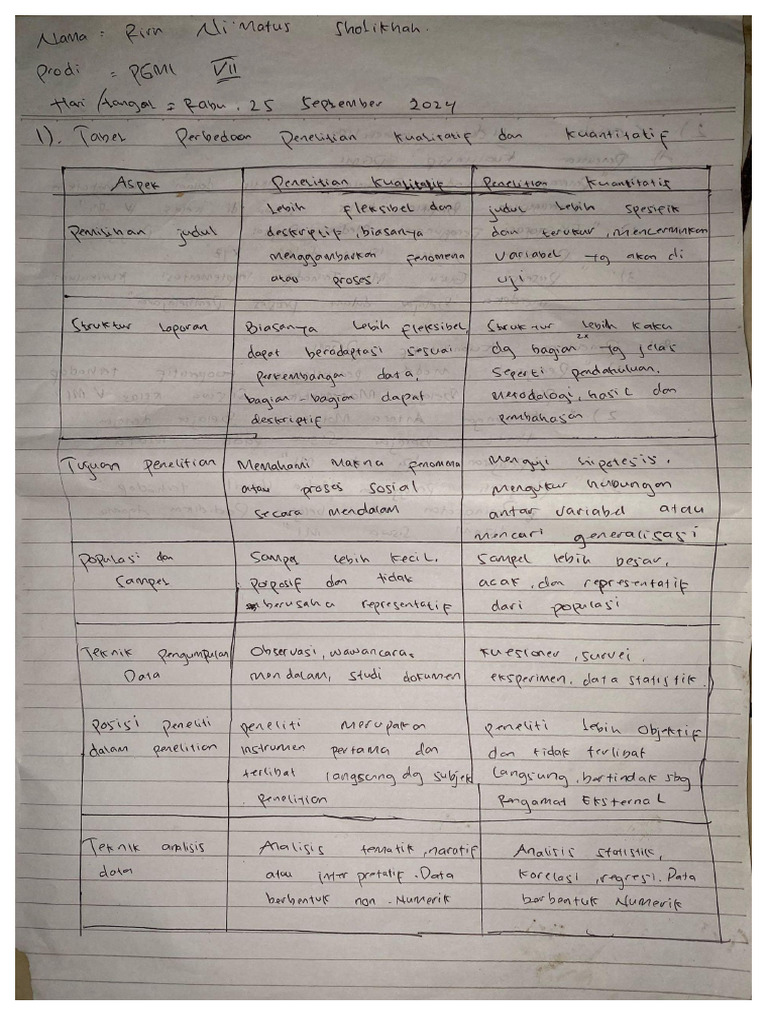 Nama : Ririn Ni'matus Sholikhah.
Prodi = PGMI VII
Hari/tanggal = Rabu, 25 September 2024
1). Tabel Perbedaan Penelitian Kualitatif dan Kuantitatif
Aspek
Penelitian Kualitatif
Penelitian Kuantitatif
Pemilihan judul
Lebih fleksibel dan
deskriptif, biasanya
menggambarkan fenomena
atau proses
judul lebih spesifik
dan terukur, mencerminkan
variabel yg akan di
uji
Struktur laporan
Biasanya lebih fleksibel,
dapat beradaptasi sesuai
perkembangan data,
bagian-bagian dapat
deskriptif
Struktur lebih kaku
dg bagian yg jelas
seperti pendahuluan,
metodologi, hasil dan
pembahasan
Tujuan penelitian
Memahami makna fenomena
atau proses sosial
secara mendalam
Menguji hipotesis,
mengukur hubungan
antar variabel atau
mencari generalisasi
Populasi dan
Sampel
Sampel lebih kecil,
porposif dan tidak
berusaha representatif
Sampel lebih besar,
acak, dan representatif
dari populasi
Teknik Pengumpulan
Data
Observasi, wawancara,
mendalam, studi dokumen
kuesioner, survei,
eksperimen, data statistik.
Posisi peneliti
dalam penelitian
peneliti merupakan
instrumen pertama dan
terlibat langsung dg subjek
penelitian
peneliti lebih objektif
dan tidak terlibat
langsung, bertindak sbg
Pengamat Eksternal
Teknik analisis
data
Analisis tematik, naratif
atau interpretatif. Data
berbentuk non-Numerik
Analisis statistik,
korelasi, regresi. Data
berbentuk Numerik